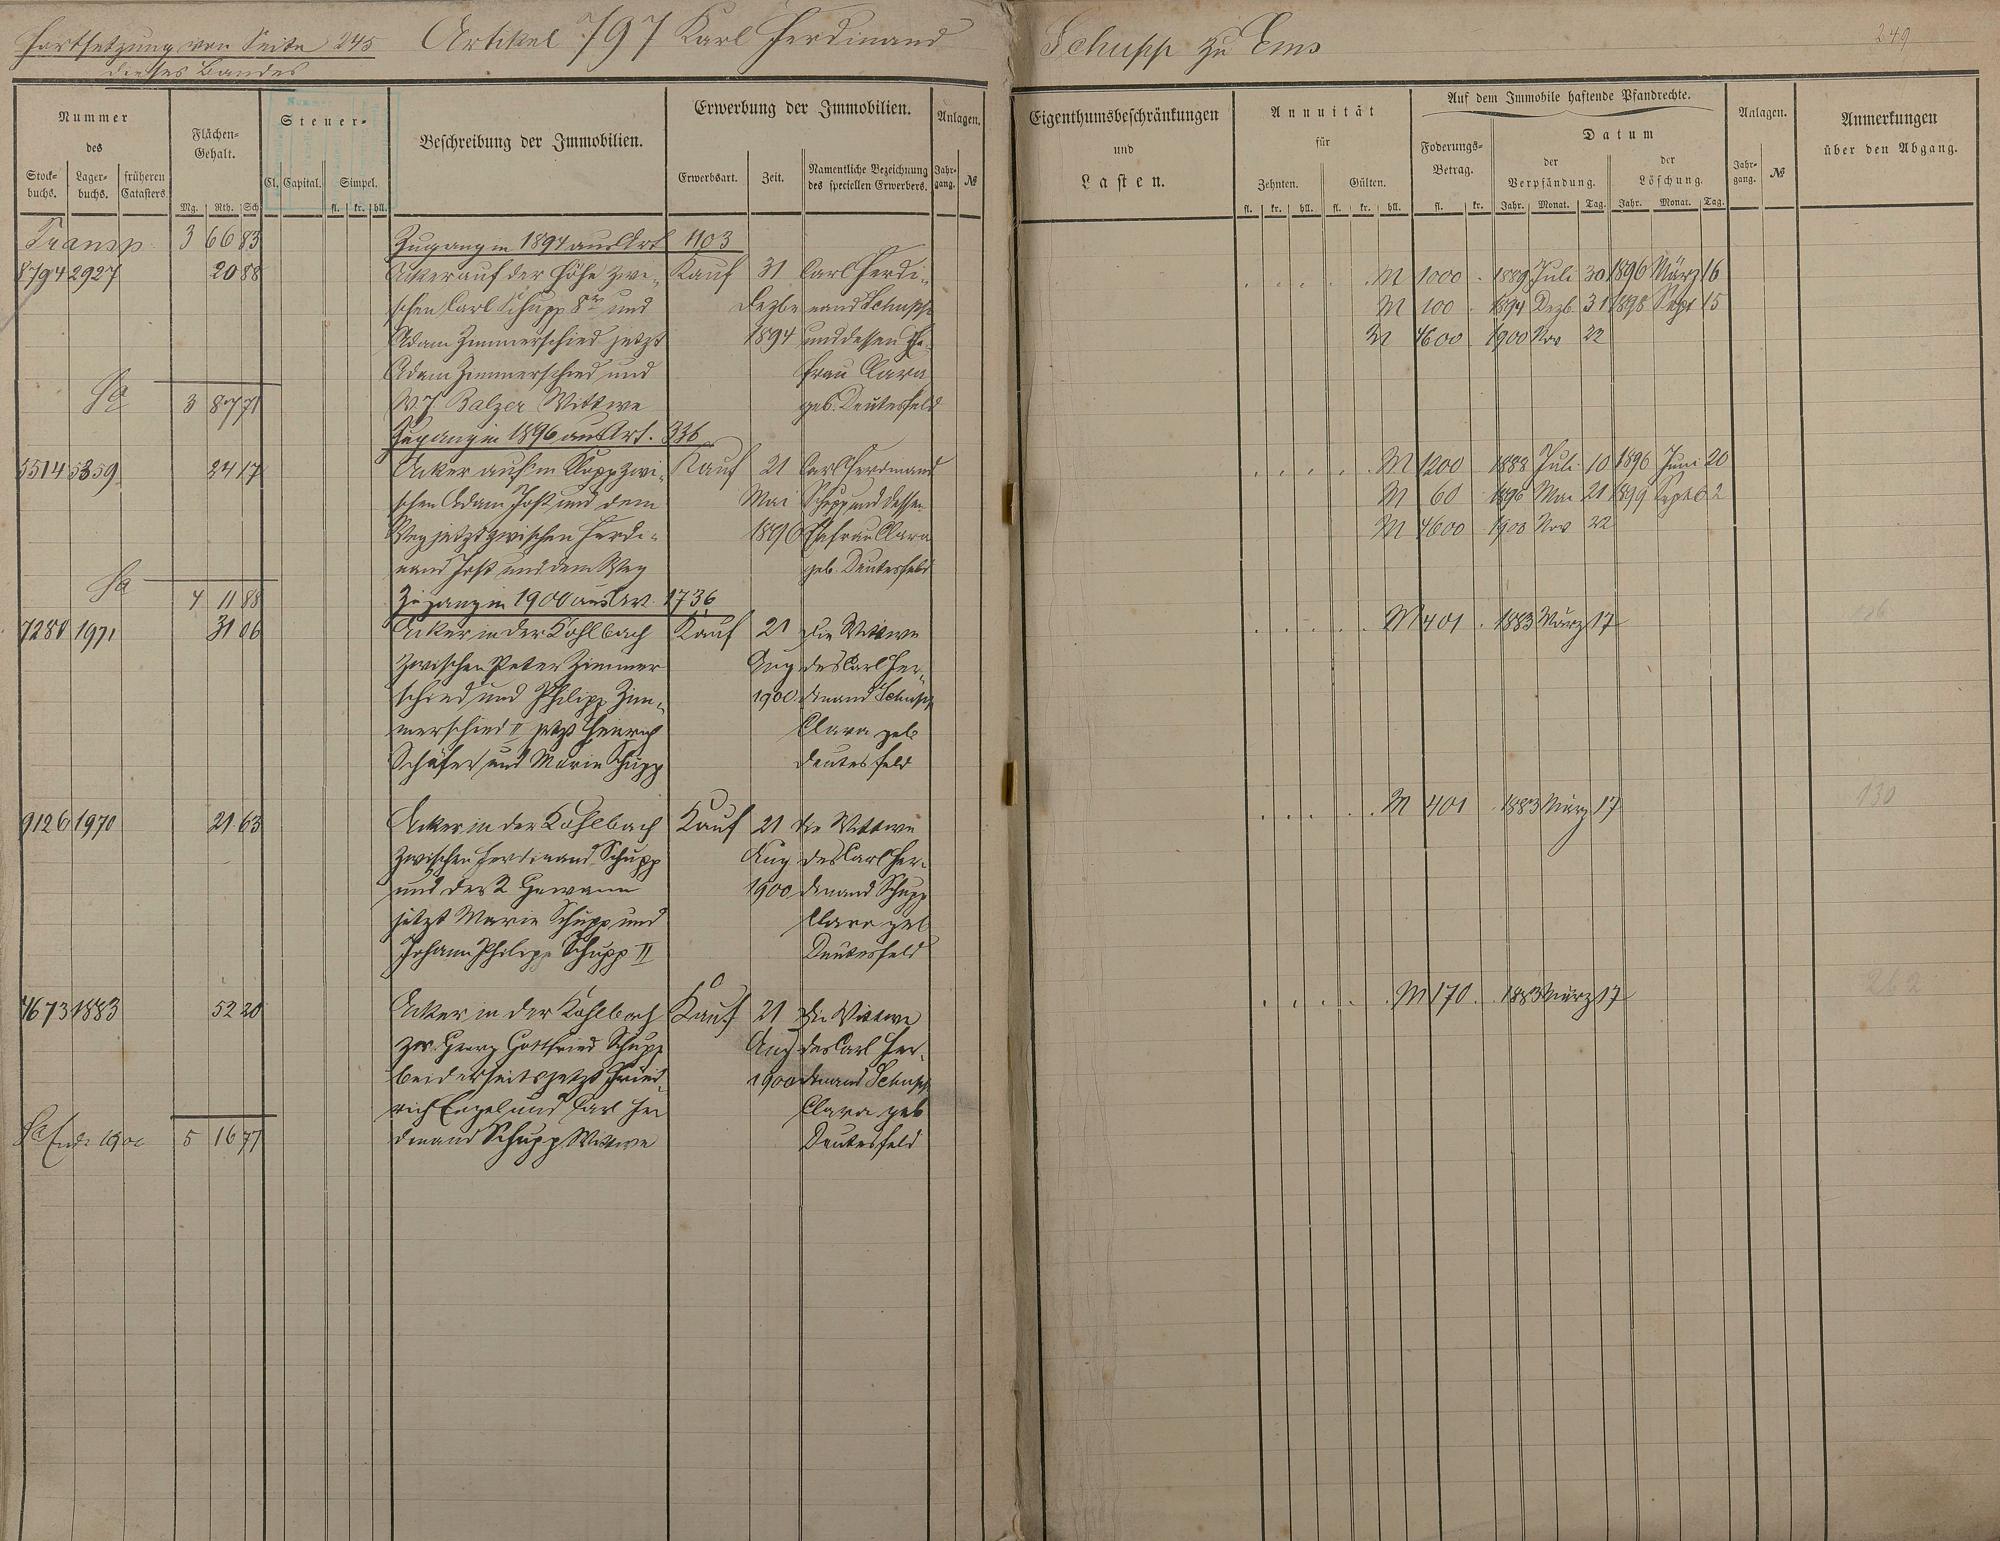 Fortsetzung von Seite 245
dieses Bandes
Artikel 797 Karl Ferdinand Schupp zu Ems
249
Nummer des
Stockbuchs. Lagerbuchs. früheren Catasters
Flächen-Gehalt.
Mg. Rth. Sch
Steuer-
Cl. Capital. Simpel.
fl. kr. hll.
Beschreibung der Immobilien.
Erwerbung der Immobilien.
Erwerbsart. Zeit. Namentliche Bezeichnung des speciellen Erwerbers.
Anlagen.
Jahrgang. №
Eigenthumsbeschränkungen
und
Lasten.
Annuität
für
Zehnten. Gülten.
fl. kr. hll. fl. kr. hll.
Auf dem Immobile haftende Pfandrechte.
Foderungs-Betrag.
fl. kr.
Datum
der Verpfändung. der Löschung.
Jahr. Monat. Tag. Jahr. Monat. Tag.
Anlagen.
Jahrgang. №
Anmerkungen
über den Abgang.
Transp. 3 66 83 Zugang in 1894 aus Art 1103
8794 2927 20 88 Acker auf der Höhe zwi- Kauf 31 Carl Ferdi- M 1000 1889 Juli 30 1896 März 16
schen Carl Schupp 8r und Dezbr nand Schupp M 100 1894 Dezb. 31 1898 Sept 15
Adam Zimmerschied jetzt 1894 und dessen Ehe- M 4600 1900 Nov 22
Adam Zimmerschied und frau Clara
Sa 3 87 71 W. J. Balzer Wittwe geb. Deutesfeld
Zugang in 1896 aus Art. 336
5514 5359 24 17 Acker auf'm Kopp zwi- Kauf 21 Carl Ferdinand M 1200 1888 Juli 10 1896 Juni 20
schen Adam Jost und dem Mai Schupp und dessen M 60 1896 Mai 21 1899 Septb 2
Weg jetzt zwischen Ferdi- 1896 Ehefrau Clara M 4600 1900 Nov 22
nand Jost und dem Weg geb. Deutesfeld
Sa 4 11 88 Zugang in 1900 aus Art. 1736
7280 1971 31 06 Acker in der Kohlbach Kauf 21 Die Wittwe M 401 1883 März 17
zwischen Peter Zimmer- Aug des Carl Fer-
schied und Philipp Zim- 1900 dinand Schupp
merschied II jetzt Heinrich Clara geb
Schäfer und Marie Schupp Deutesfeld
9126 1970 21 63 Acker in der Kohlbach Kauf 21 Die Wittwe M 401 1883 März 17 130
zwischen Ferdinand Schupp Aug des Carl Fer-
und der 2 Gewann 1900 dinand Schupp
jetzt Marie Schupp und Clara geb
Johann Philipp Schupp II Deutesfeld
4673 1883 52 20 Acker in der Kohlbach Kauf 21 Die Wittwe M 170 1883 März 17 262
zw. Georg Gottfried Schupp Aug des Carl Fer-
beiderseits jetzt Fried- 1900 dinand Schupp
rich Engel und Carl Fer Clara geb
Sa Ende 1900 5 16 77 dinand Schupp Wittwe Deutesfeld